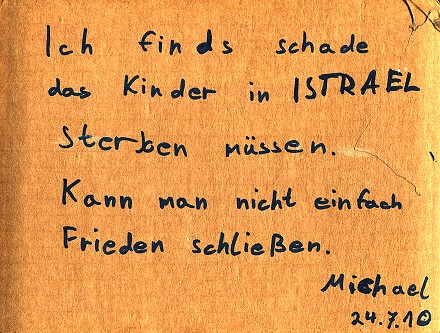 Ich finds schade
das Kinder in ISTRAEL
Sterben müssen.
Kann man nicht einfach
Frieden schließen.
Michael
24.7.10